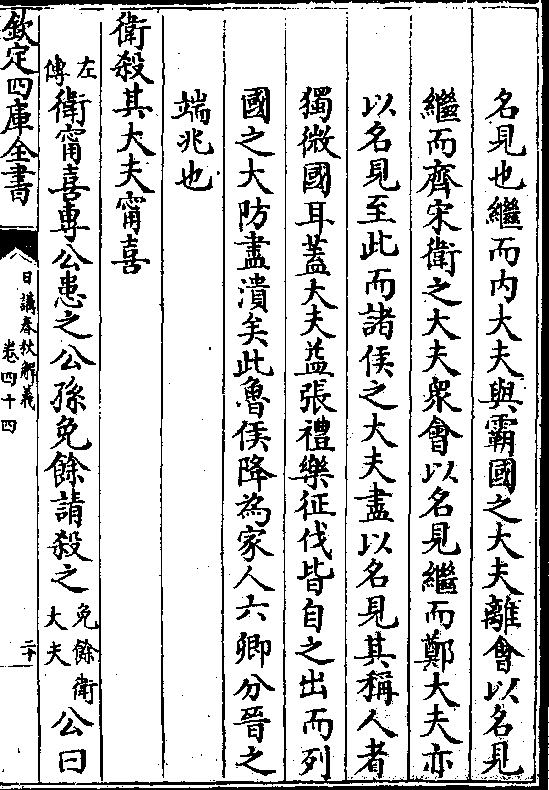 名見也繼而内大夫與霸國之大夫離會以名見
繼而齊宋衛之大夫衆會以名見繼而鄭大夫亦
以名見至此而諸侯之大夫盡以名見其稱人者
獨微國耳蓋大夫益張禮樂征伐皆自之出而列
國之大防盡潰矣此魯侯降為家人六卿分晉之
端兆也
衛殺其大夫甯喜
左傳衛甯喜專公患之公孫免餘請殺之免餘衛大夫公曰
欽定四庫全書
日講春秋解義
卷四十四
二十